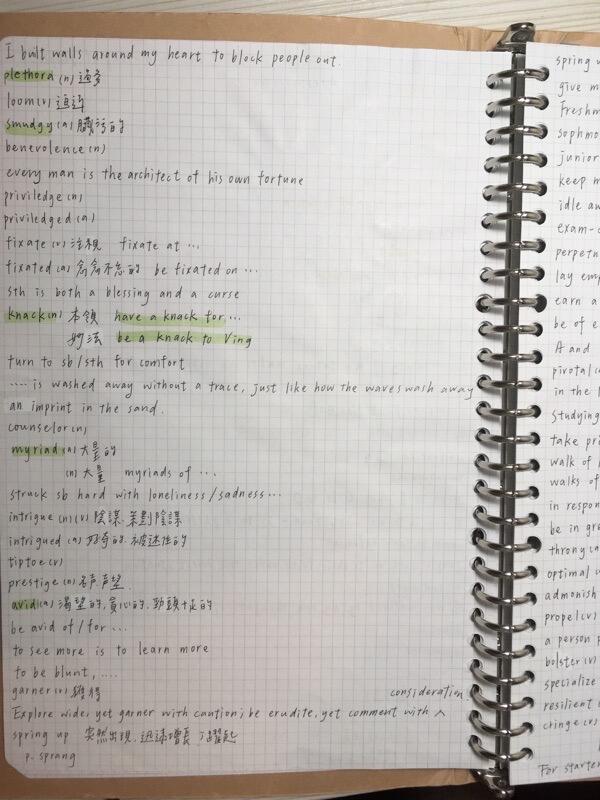 I built walls around my heart to block people out.
plethora (n) 過多
loom (v) 逼近
smudgy (a) 髒污的
benevolence (n)
every man is the architect of his own fortune
priviledge (n)
priviledged (a)
fixate (v) 注視 fixate at ...
fixated (a) 念念不忘的 be fixated on ...
sth is both a blessing and a curse
knack (n) 本領 have a knack for ...
妙法 be a knack to Ving
turn to sb/sth for comfort
.... is washed away without a trace, just like how the waves wash away
an imprint in the sand.
counselor (n)
myriad (a) 大量的
(n) 大量 myriads of ...
struck sb hard with loneliness/sadness...
intrigue (n) (v) 陰謀.策劃陰謀
intrigued (a) 好奇的.被迷住的
tiptoe (v)
prestige (n) 名声.声望
avid (a) 渴望的.貪心的.勁頭十足的
be avid of/for ...
to see more is to learn more
to be blunt, ....
garner (v) 獲得
consideration
Explore wide, yet garner with caution; be erudite, yet comment with ^
spring up 突然出現.迅速增長
p. sprang
spring
give m
Freshm
sophmo
junior
keep m
idle aw
exam-c
perpetu
lay emp
earn a
be of e
A and
pivotal
in the
studying
take pri
walk of
walks of
in respon
be in gr
throng
optimal
admonish
propel (v)
a person
bolster (v)
specialize
resilient
cringe (v)
For starter